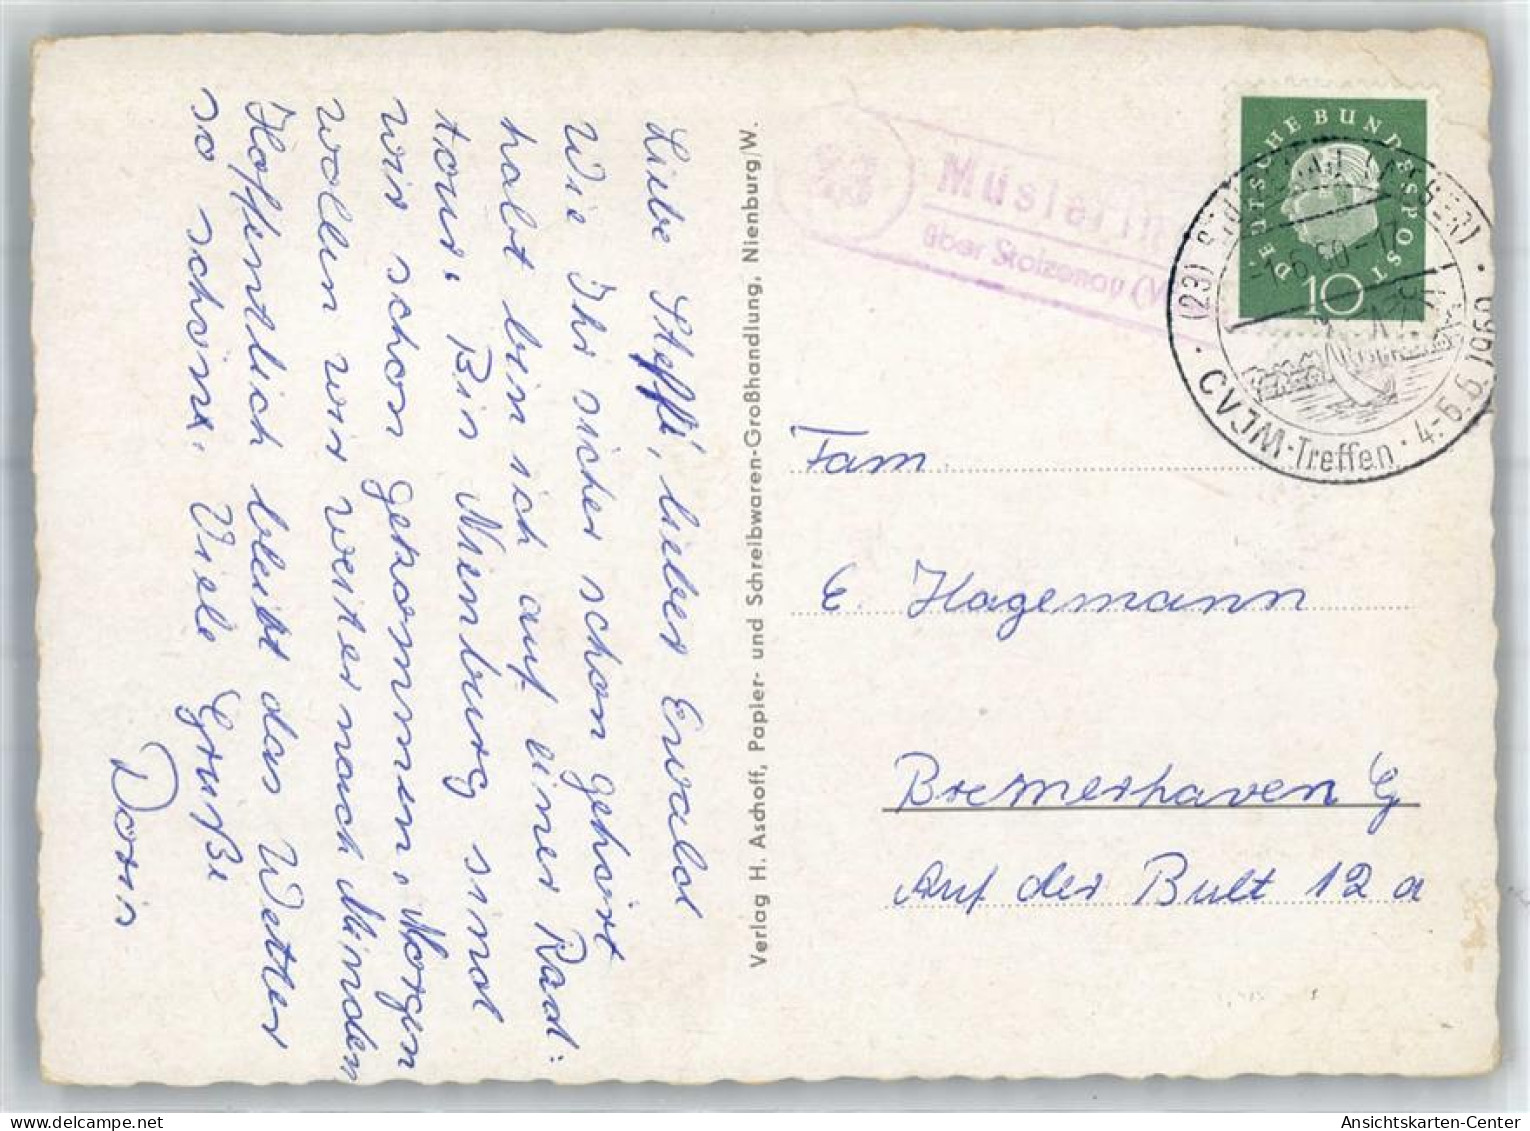 Liebe Steffi, lieber Ewald
Wie Ihr sicher schon gehört
habt bin ich auf einer Rad-
tour. Bis Nienburg sind
wir schon gekommen. Morgen
wollen wir weiter nach Minden
Hoffentlich bleibt das Wetter
so schön. Viele Grüße
Doris
Verlag H. Aschoff, Papier- und Schreibwaren-Großhandlung, Nienburg/W.
über Stolzenau
DEUTSCHE BUNDESPOST
10
(23)
-1.6.60-17
CVJM-Treffen · 4.-6.6.1960
Fam.
E. Hagemann
Bremerhaven G
Auf der Bult 12 a
delcampe.net
Ansichtskarten-Center